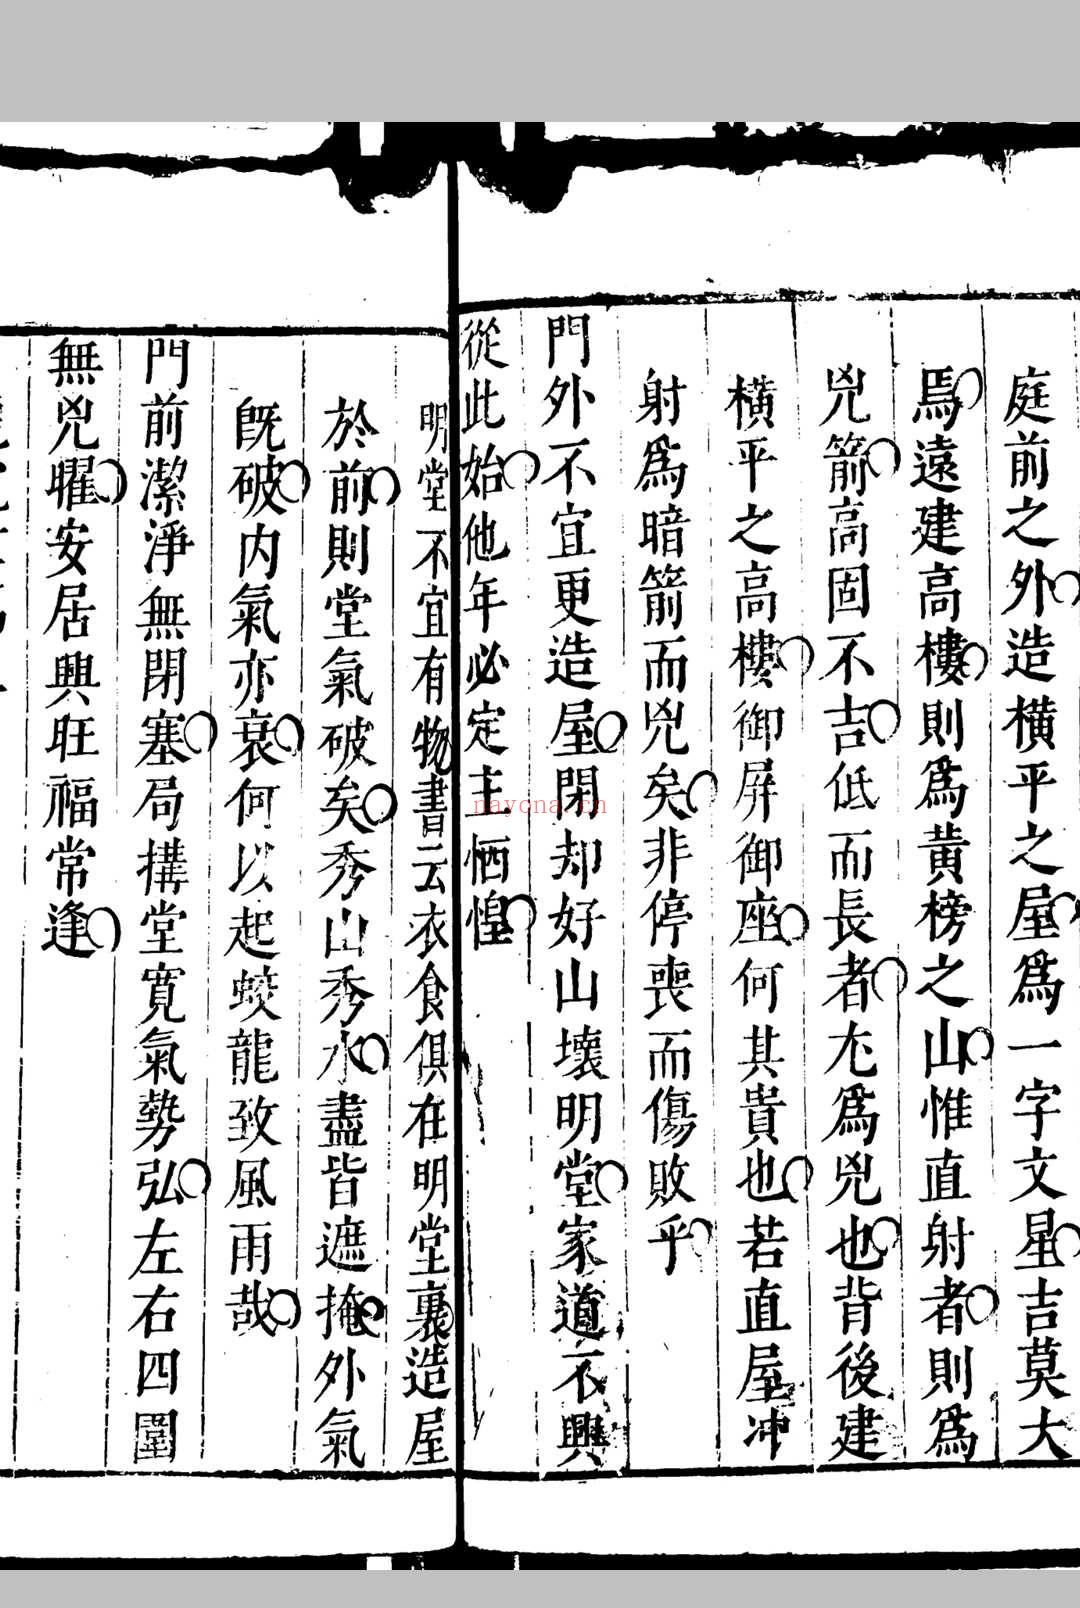 庭前之外造橫平之屋爲一字文星吉莫大
焉遠建高樓則爲黃榜之山惟直射者則爲
兇箭高固不吉低而長者尤爲兇也背後建
橫平之高樓御屏御座何其貴也若直屋冲
射爲暗箭而兇矣非停喪而傷敗乎
門外不宜更造屋閉却好山壞明堂家道不興
從此始他年必定主恓惶
明堂不宜有物書云衣食俱在明堂裏造屋
於前則堂氣破矣秀山秀水盡皆遮掩外氣
旣破内氣亦衰何以起蛟龍致風雨哉
門前潔淨無閉塞局搆堂寬氣勢弘左右四圍
無兇曜安居興旺福常逢
nayona.cn